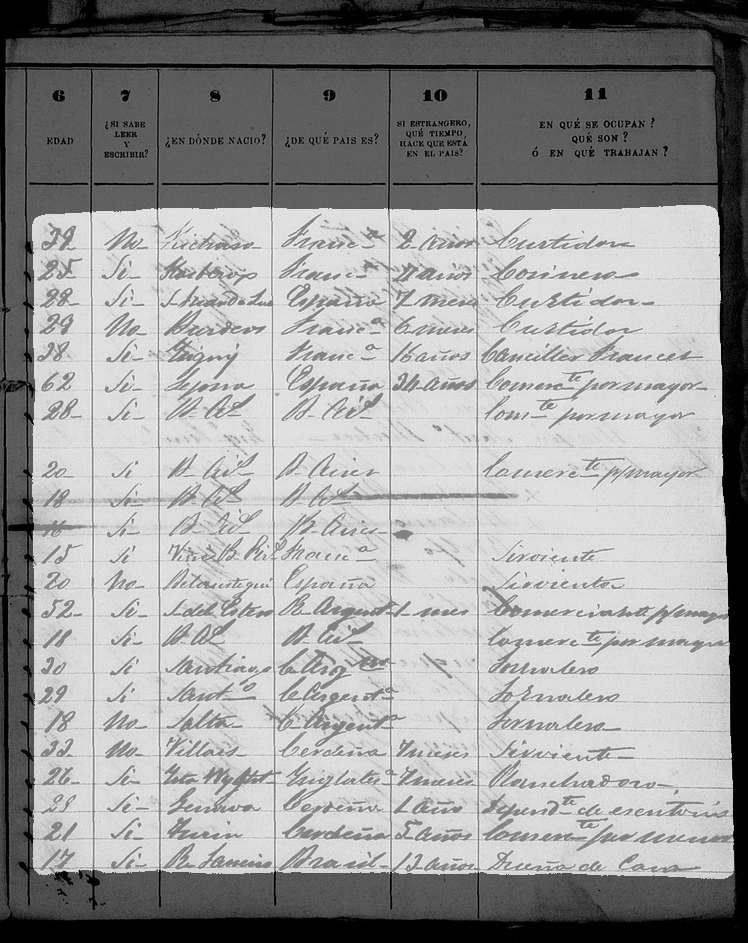 6 7 8 9 10 11
EDAD ¿SI SABE LEER Y ESCRIBIR? ¿EN DÓNDE NACIÓ? ¿DE QUÉ PAIS ES? SI ESTRANGERO, QUÉ TIEMPO HACE QUE ESTÁ EN EL PAIS? EN QUÉ SE OCUPAN? QUÉ SON? Ó EN QUÉ TRABAJAN?
No Franc.a 2 años Curtidor
25 Si Franc.a años Cosinero
28 Si España 7 meses Curtidor
No Burdeos Franc.a 6 meses Curtidor
38 Si Franc.a 16 años Canciller Frances
62 Si España 34 años Comerc.te por mayor
28 Si B. As. B. As. Com.te por mayor
20 Si B. As. B. Aires Comerc.te p/mayor
18 Si B. As. B. As.
16 Si B. As. B. Aires
15 Si Franc.a Sirviente
20 No España Sirvienta
52 Si S. del Estero R. Argent. 1 mes Comerciante p/mayor
18 Si B. As. B. As. Comerc.te por mayor
30 Si Santiago C. Arg.na Jornalero
29 Si Sant.o C. Argent.a Jornalero
18 No Salta C. Argent.a Jornalero
No Cerdeña 7 meses Sirviente
26 Si Inglater.a 7 meses Planchadora
Si Genova Cerdeña 1 año Depend.te de escritorio
21 Si Turin Cerdeña 5 años Comerc.te por menor
17 Si R. Janeiro Brasil 13 años Dueña de Casa